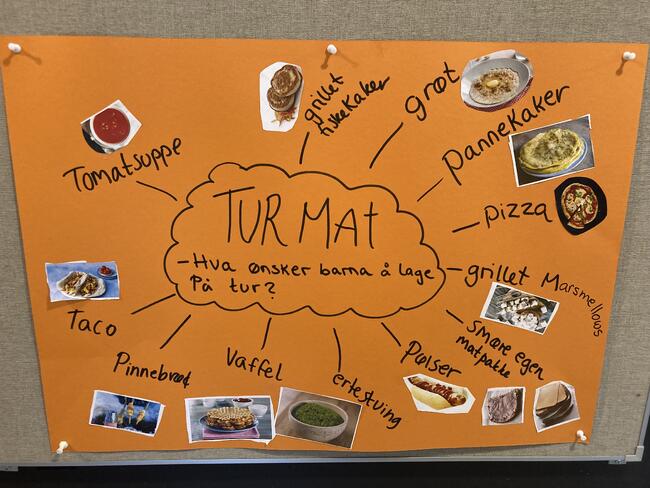 TUR MAt
- Hva ønsker barna å lage
På tur?
grillet
fiskeKaker
grøt
panneKaker
pizza
grillet Marsmellows
smøre egen
matpakke
Pølser
ertestuing
Vaffel
Pinnebrød
Taco
Tomatsuppe